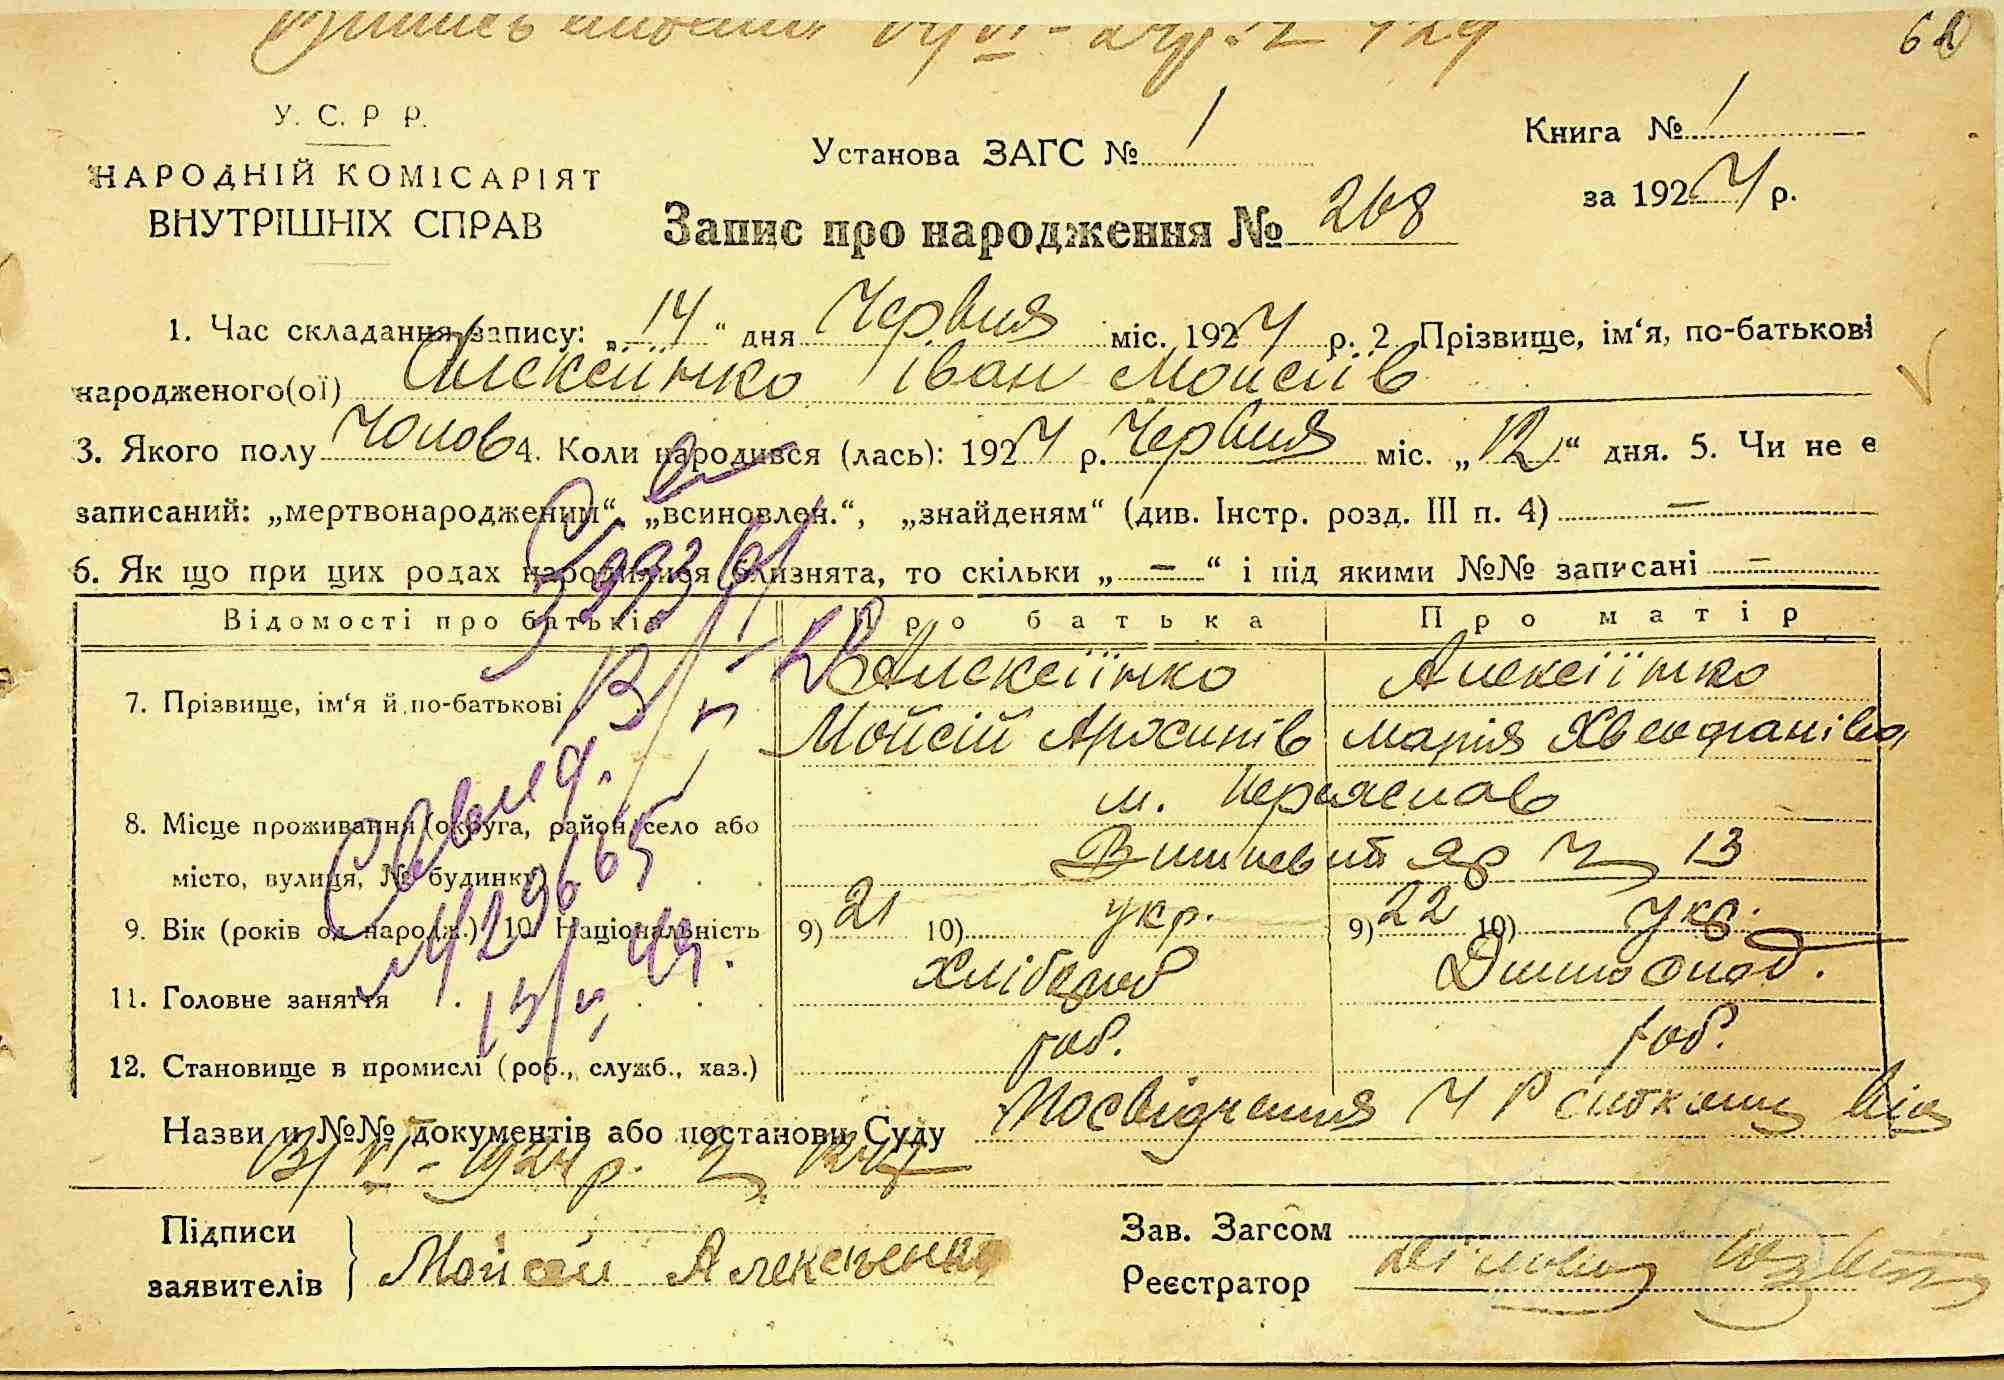 62
У. С. Р Р.
НАРОДНІЙ КОМІСАРІЯТ
ВНУТРІШНІХ СПРАВ
Установа ЗАГС № 1
Книга № 1
за 1924 р.
Запис про народження № 268
1. Час складання запису: „14“ дня Червня міс. 1924 р. 2. Прізвище, ім‘я, по-батькові
народженого(ої) Алексіїнко Іван Мойсіїв
3. Якого полу Чолов 4. Коли народився (лась): 1924 р. Червня міс. „12“ дня. 5. Чи не є
записаний: „мертвонародженим“, „всиновлен.“, „знайденям“ (див. Інстр. розд. III п. 4) —
6. Як що при цих родах народилися близнята, то скільки „ — “ і під якими №№ записані —
Відомості про батьків Про батька Про матір
7. Прізвище, ім‘я й по-батькові Алексіїнко Алексіїнко
Мойсій Архипів Марія Хвеофанівна
м. Переяслав
8. Місце проживання (округа, район, село або
місто, вулиця, № будинку Вишневий яр Ч 13
9. Вік (років од народж.) 10. Національність 9) 21 10) укр. 9) 22 10) Укр.
11. Головне заняття Хлібороб Домогосп.
12. Становище в промислі (роб., служб., хаз.) роб. роб.
Назви и №№ документів або постанови Суду Посвідчення
13/VI-1924 р.
Підписи
заявителів
Мойсей Алексеенко
Зав. Загсом
Реєстратор
5993
Свид.
429665